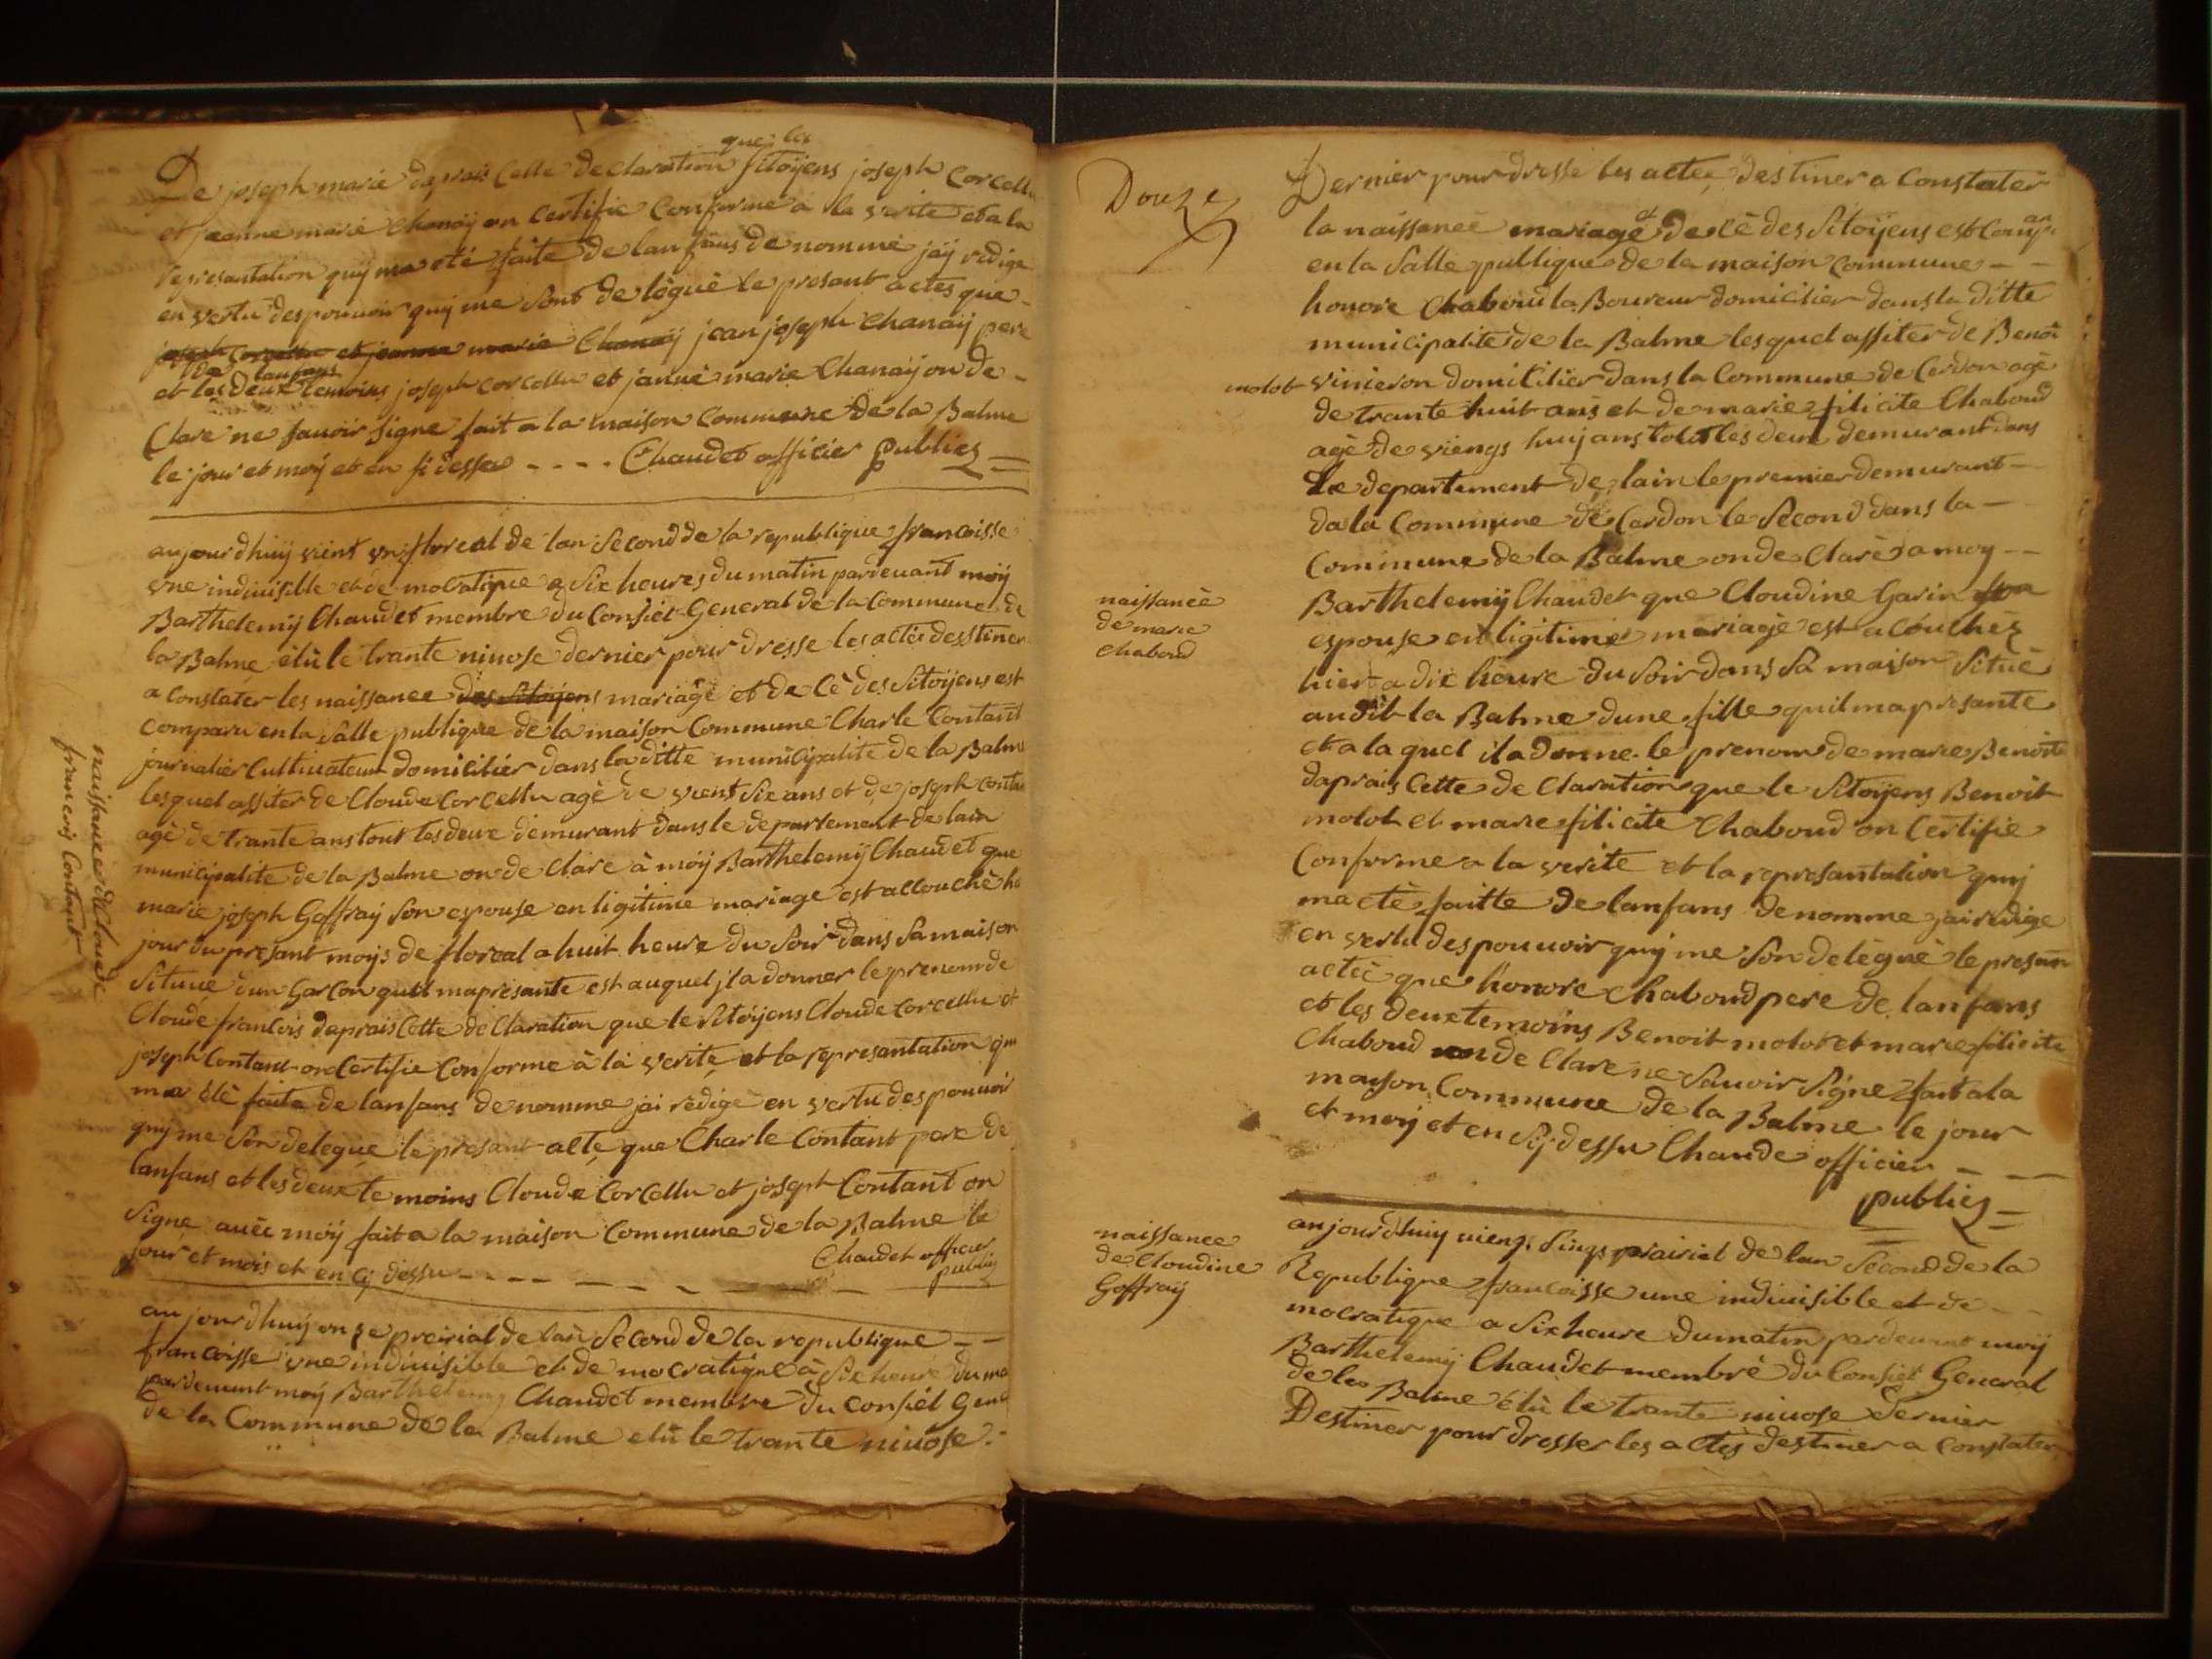 que les
De joseph marie daprais Cette declaration sitoÿens joseph Corcellu
et jeanne marie Chanaÿ on Certifie Conforme a la verite et a la
represantation quÿ ma eté faite de lanfans de nommé jaÿ redige
en vertu des pouvoir quÿ me sont de légué le presant actes que
joseph Corcellu et jeanne marie Chanaÿ jean joseph Chanaÿ pere
de lanfans
et les deux temoins joseph corcellu et janne marie Chanaÿ on de
Clare ne sauoir signe fait a la maison Commune de la Balme
le jour et moÿ et en si dessu - - - - Chaudet officier publicq
aujourdhuÿ vient un floreal de lan Second de la republique francoisse
vne indiuisible et de mocratique a Six heures du matin pardeuant moÿ
Barthelemÿ Chaudet membre du Consiel General de la Commune de
la Balme élu le trante niuose dernier pour dresse les actes desstiner
a constater les naissance des Sitoÿens mariage et de Cè des Sitoÿens est
comparu en la Salle publique de la maison Commune Charle Contant
journalier Cultiuateur domicilier dans la ditte municipalite de la Balme
lesquel assiter de Cloude Corcellu agè de vient Six ans et de joseph contant
agè de trante ans tout les deux demurant dans le departement de lain
municipalite de la Balme on de Clare à moÿ Barthelemÿ Chaudet que
marie joseph Goffraÿ Son espouse en ligitime mariage est accouchè
jour du presant moÿs de floreal a huit heure du Soir dans Sa maison
Situué dun Garcon quil mapresante est auquel jl a donner le prenom de
Cloude francois daprais Cette de Claration que le Sitoÿens Cloude Corcellu et
joseph Contant on Certifie Conforme à la verite et la represantation quÿ
ma été faite de lanfans de nomme jai rèdigè en vertu des pouuoir
quÿ me Son delegue le presant acte que Charle Contant pere de
lanfans et les deux te moins Cloude Corcellu et joseph Contant on
Signe auéc moÿ fait a la maison Commune de la Balme le
jour et mois et en cÿ dessu - - - - Chaudet officier
public
naissance de Cloude
francois Contant
aujourdhuÿ onze preirial de lan Second de la republique
francoisse vne indiuisible et de mocratique à Six heure du ma
pardeuant moÿ Barthelemy Chaudet membre du consiel Gene
de la Commune de la Balme elù le trante niuôse
Douze
Dernier pour dresse les actes destiner a Constater
la naissance mariage et de cè des Sitoÿens est Comp
en la Salle publique de la maison Commune - -
honore Chaboud la Boureur domicilier dans la ditte
municipalite de la Balme lesquel assiter de Benoi
molot vinieron domicilier dans la Commune de Cerdon agè
de trante huit ans et de marie filicite Chaboud
agè de viengs huÿ ans tout les deux demurant dans
Le departement de lain le premier demurant
da la Commune de Cerdon le Second dans la
Commune de la Balme on de Clarè a moy - -
naissancè
de marie
chaboud
Barthelemÿ Chaudet que Cloudine Garin Son
espouse en ligitime mariagè est acóuchèz
hier a dix heure du Soir dans Sa maison Situè
audit la Balme dune fille quil ma presante
et a la quel il a donne le prenom de marie Benoite
daprais Cette de Claration que le Sitoÿens Benoit
molot et marie filicite Chaboud on Certifie
Conforme a la verite et la represantation quÿ
ma etè faitte de lanfans denomme jai redige
en vertu des pouuoir quÿ me Son delégué le presan
acteè que honore Chaboud pere de lanfans
et les deux temoins Benoit molot et marie filicite
Chaboud on de Clare ne Sauoir Signe fait a la
maison Commune de la Balme le jour
et moÿ et en Sÿ dessu Chaude officier
publicq
naissance
de Cloudine
Goffraÿ
aujourdhuÿ vieng Sings prairial de lan Second de la
Republique francoisse une indiuisible et dé
mocratique a Six heure du matin pardeuant moÿ
Barthelemÿ Chaudet membré du Consiel General
de la Balme élù le trante niuose dernier
Destiner pour dresser les actès destiner a constater